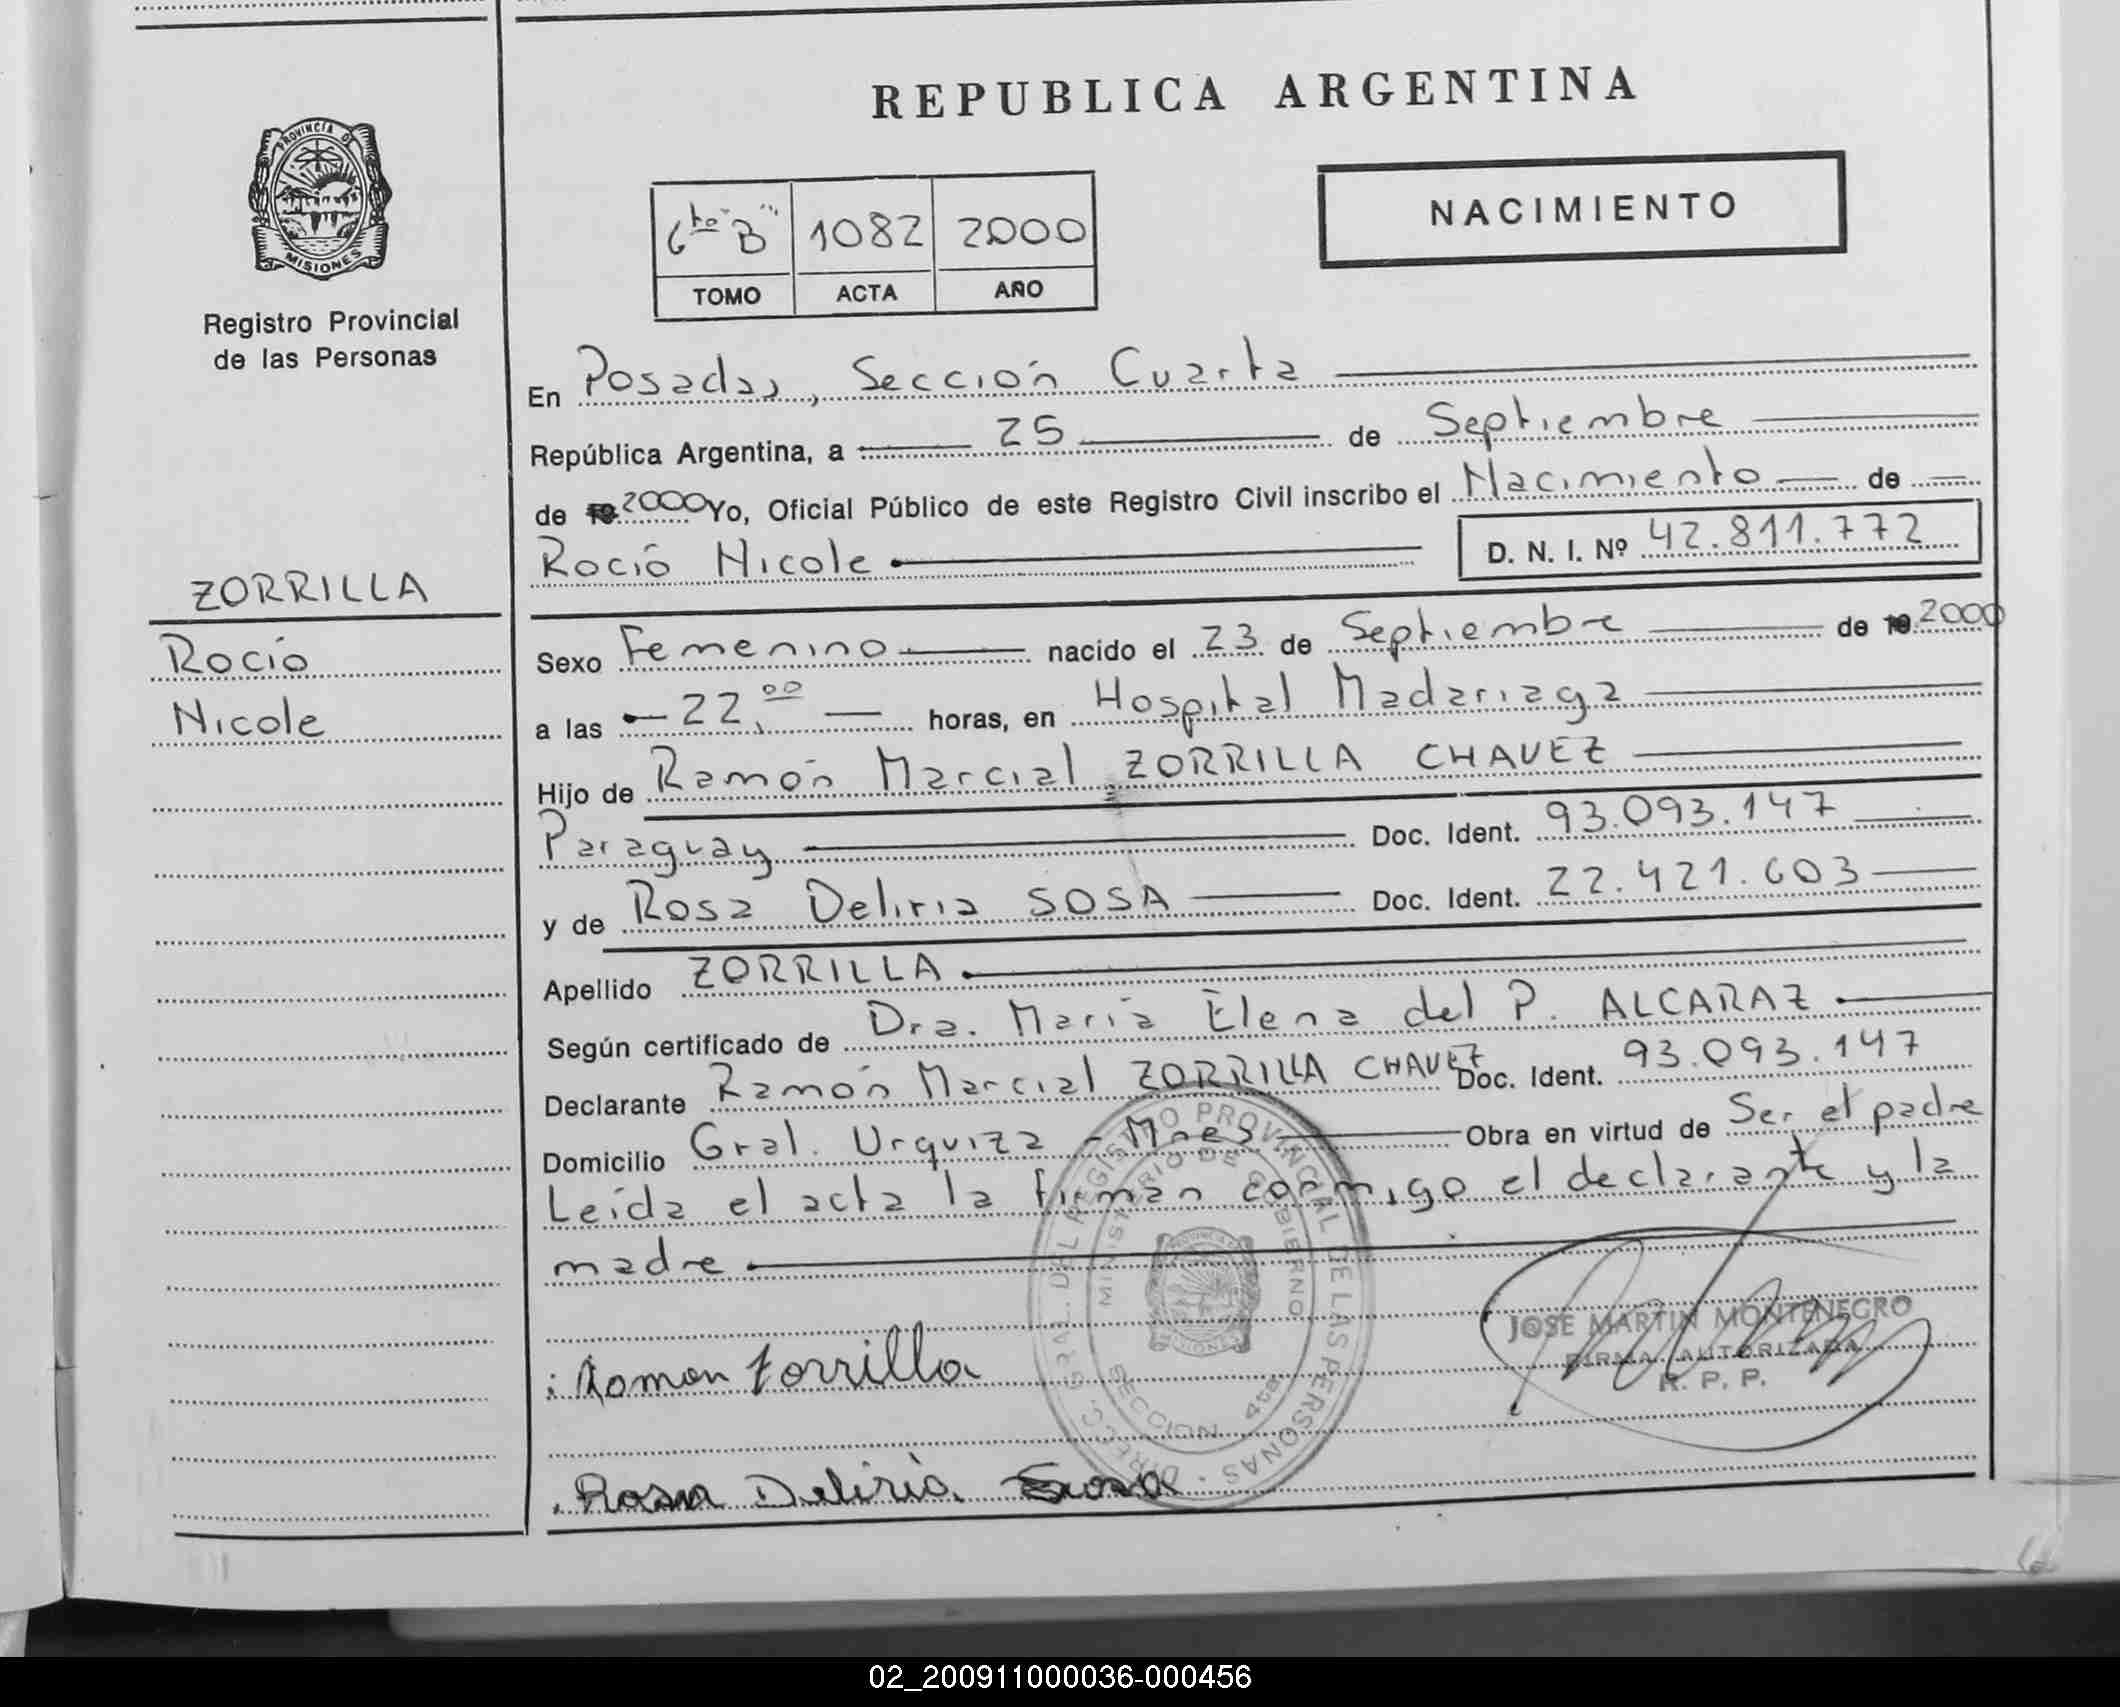 REPUBLICA ARGENTINA
PROVINCIA DE
MISIONES
Registro Provincial
de las Personas
6to "B" 1082 2000
TOMO ACTA AÑO
NACIMIENTO
ZORRILLA
Rocío
Nicole
En Posadas, Sección Cuarta
República Argentina, a 25 de Septiembre
de 19 2000 Yo, Oficial Público de este Registro Civil inscribo el Nacimiento de
Rocío Nicole D. N. I. Nº 42.811.772
Sexo Femenino nacido el 23 de Septiembre de 19 2000
a las 22,00 horas, en Hospital Madariaga
Hijo de Ramón Marcial ZORRILLA CHAVEZ
Paraguay Doc. Ident. 93.093.147
y de Rosa Deliria SOSA Doc. Ident. 22.421.603
Apellido ZORRILLA
Según certificado de Dra. María Elena del P. ALCARAZ
Declarante Ramón Marcial ZORRILLA CHAVEZ Doc. Ident. 93.093.147
Domicilio Gral. Urquiza - Mnes Obra en virtud de Ser el padre
Leída el acta la firman conmigo el declarante y la
madre
DIRECC. GRAL. DEL REGISTRO PROVINCIAL DE LAS PERSONAS
MINISTERIO DE GOBIERNO
SECCION 4ta
JOSE MARTIN MONTENEGRO
FIRMA AUTORIZADA
R. P. P.
Ramon Zorrilla
Rosa Deliria Sosa
02_200911000036-000456